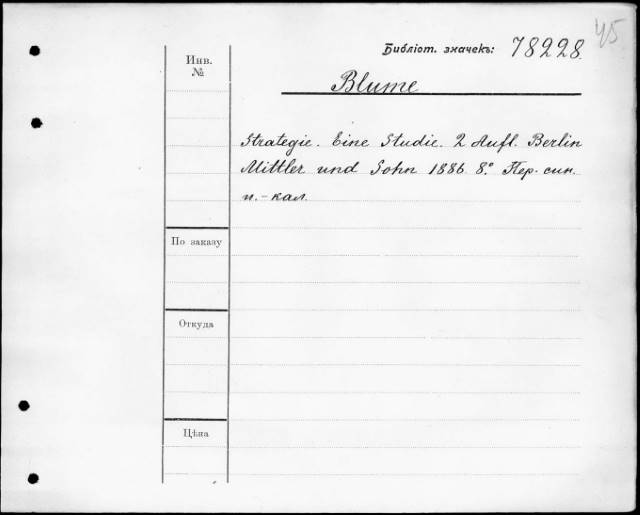 45
Библіот. значекъ: 78228.
Инв.
№
Blume
Strategie. Eine Studie. 2 Aufl. Berlin
Mittler und Sohn 1886 8.° Пер. син.
п.-кал.
По заказу
Откуда
Цѣна